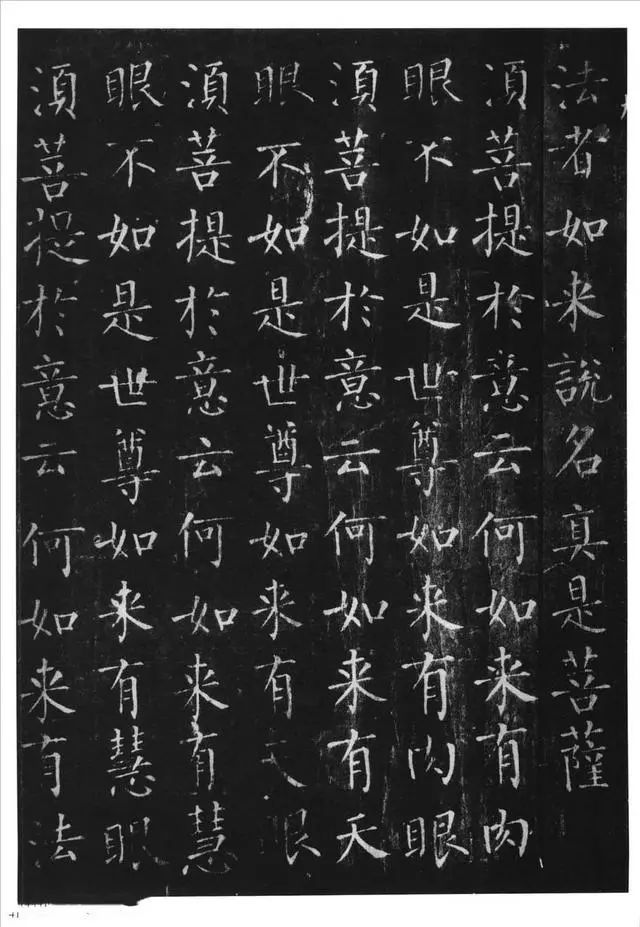 法者如来說名真是菩薩
須菩提於意云何如来有肉
眼不如是世尊如来有肉眼
須菩提於意云何如来有天
眼不如是世尊如来有天眼
須菩提於意云何如来有慧
眼不如是世尊如来有慧眼
須菩提於意云何如来有法
41